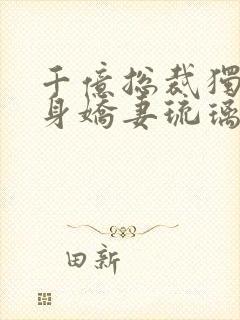 千億總裁獨
身嬌妻琉璃
田新